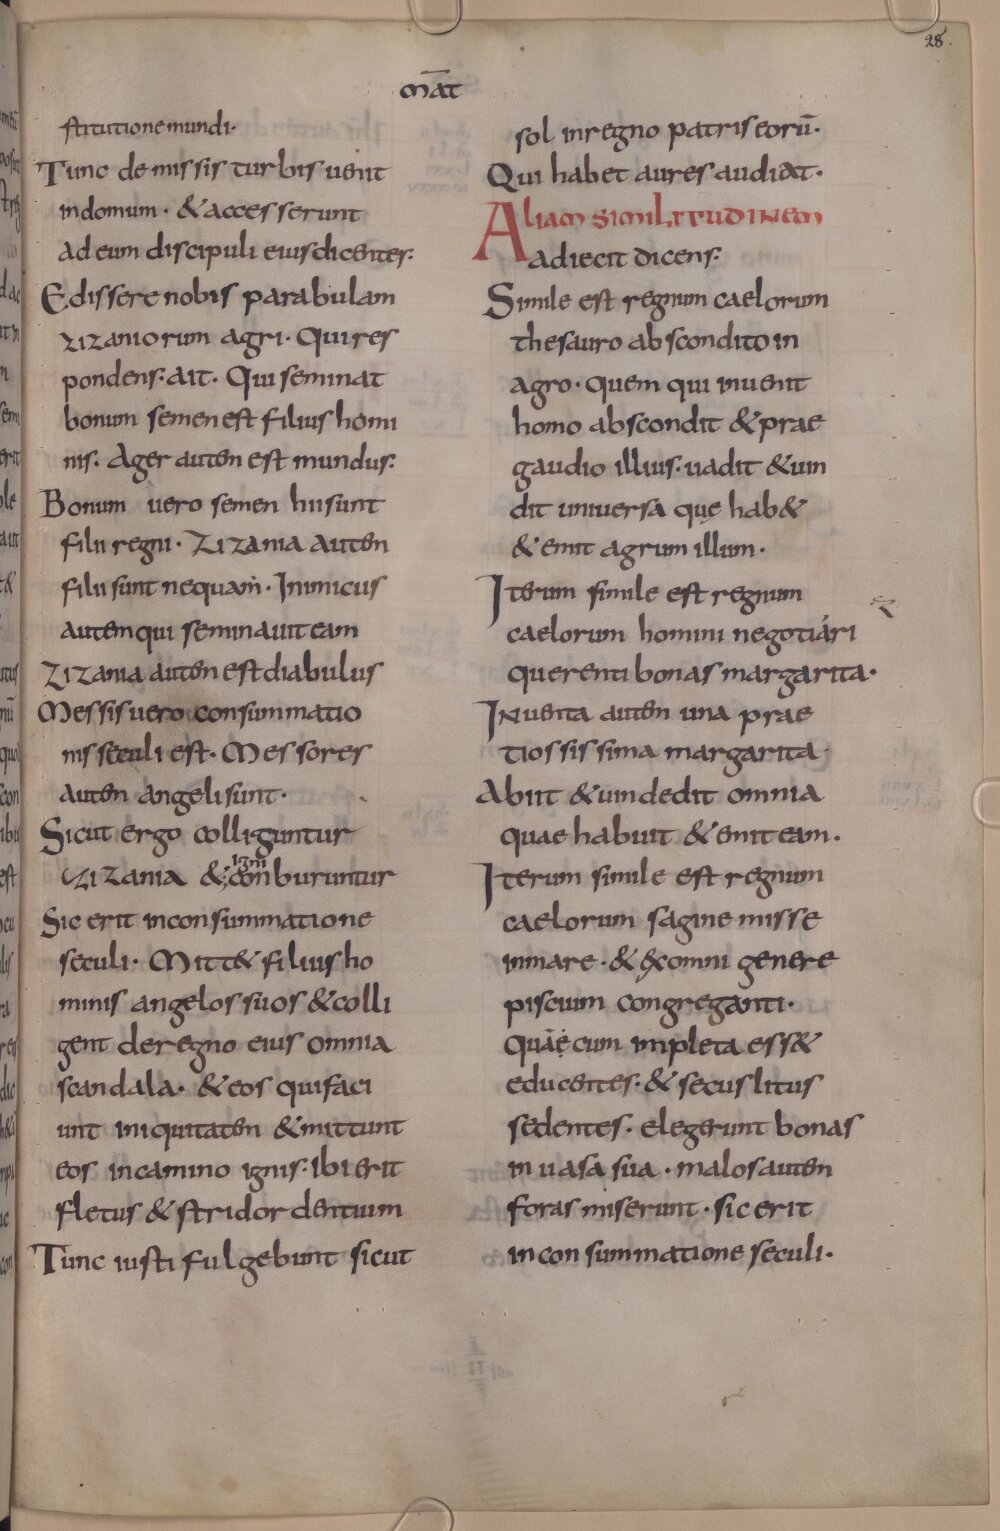 28.
MāT
stitutione mundi·
Tunc demissis turbis uenit
indomum· & accesserunt
ad eum discipuli eius dicentes:
Edissere nobis parabulam
zizaniorum agri· Qui res
pondens· ait· Qui seminat
bonum semen est filius homi
nis· Ager autem est mundus:
Bonum uero semen hii sunt
filii regni· Zizania autem
filii sunt nequam· Inimicus
autem qui seminauit eam
Zizania autem est diabulus
Messis uero consummatio
nis seculi est· Messores
autem angeli sunt·
Sicut ergo colliguntur
zizania & igni conburuntur
Sic erit in consummatione
seculi· Mitt& filius ho
minis angelos suos & colli
gent de regno eius omnia
scandala· & eos qui faci
unt iniquitatem & mittunt
eos in camino ignis· ibi erit
fletus & stridor dentium
Tunc iusti fulgebunt sicut
sol in regno patris eorū·
Qui habet aures audiat·
Aliam similitudinem
adiecit dicens:
Simile est regnum caelorum
thesauro abscondito in
agro· quem qui inuenit
homo abscondit & prae
gaudio illius· uadit & uin
dit uniuersa que hab&
& emit agrum illum·
Iterum simile est regnum
caelorum homini negotiari
querenti bonas margarita·
Inuenta autem una prae
tiossissima margarita
Abiit & uindedit omnia
quae habuit & emit eam·
Iterum simile est regnum
caelorum sagine misse
in mare· & ex omni genere
piscium congreganti·
Quae cum impleta ess&
educentes· & secus litus
sedentes· elegerunt bonas
in uasa sua· malos autem
foras miserunt· sic erit
in consummatione seculi·